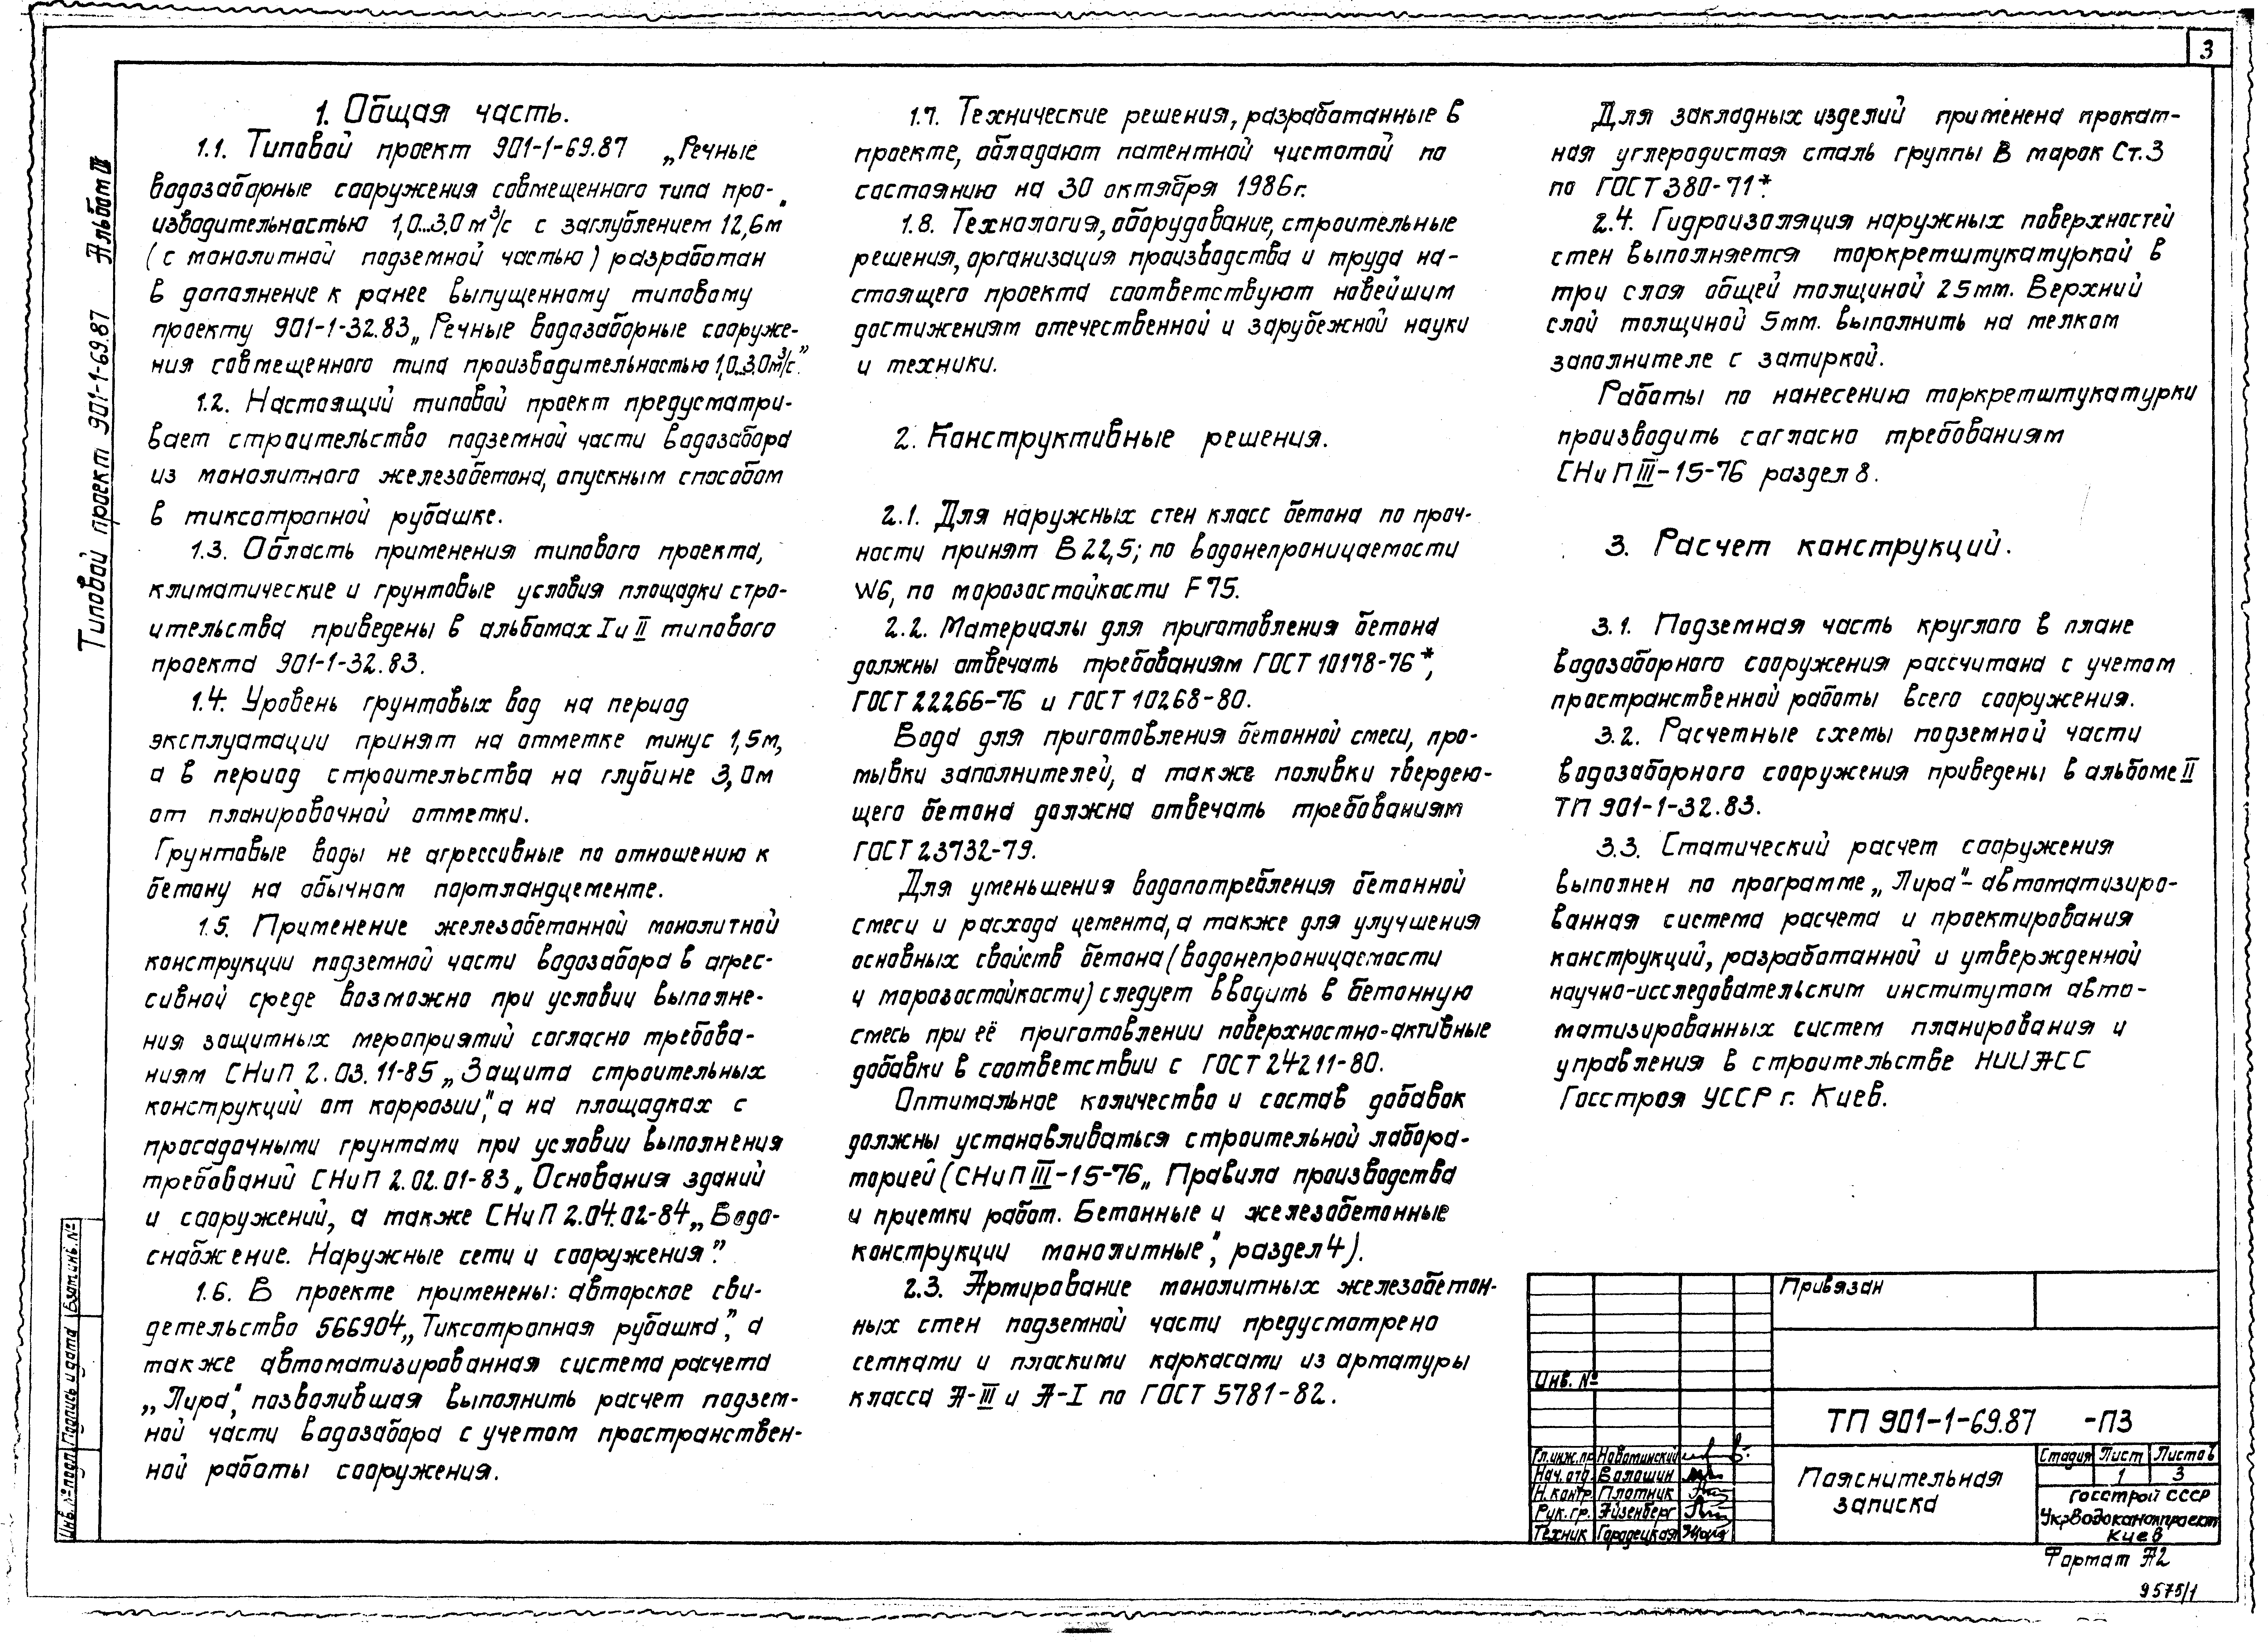 3
Типовой проект 901-1-69.87 Альбом III
1. Общая часть.
1.1. Типовой проект 901-1-69.87 „Речные
водозаборные сооружения совмещенного типа про-
изводительностью 1,0...3,0 м³/с с заглублением 12,6м
(с монолитной подземной частью) разработан
в дополнение к ранее выпущенному типовому
проекту 901-1-32.83 „Речные водозаборные сооруже-
ния совмещенного типа производительностью 1,0...3,0м³/с.”
1.2. Настоящий типовой проект предусматри-
вает строительство подземной части водозабора
из монолитного железобетона, опускным способом
в тиксотропной рубашке.
1.3. Область применения типового проекта,
климатические и грунтовые условия площадки стро-
ительства приведены в альбомах I и II типового
проекта 901-1-32.83.
1.4. Уровень грунтовых вод на период
эксплуатации принят на отметке минус 1,5м,
а в период строительства на глубине 3,0м
от планировочной отметки.
Грунтовые воды не агрессивные по отношению к
бетону на обычном портландцементе.
1.5. Применение железобетонной монолитной
конструкции подземной части водозабора в агрес-
сивной среде возможно при условии выполне-
ния защитных мероприятий согласно требова-
ниям СНиП 2.03.11-85 „Защита строительных
конструкций от коррозии”, а на площадках с
просадочными грунтами при условии выполнения
требований СНиП 2.02.01-83 „Основания зданий
и сооружений, а также СНиП 2.04.02-84 „Водо-
снабжение. Наружные сети и сооружения”.
1.6. В проекте применены: авторское сви-
детельство 566904 „Тиксотропная рубашка”, а
также автоматизированная система расчета
„Лира”, позволившая выполнить расчет подзем-
ной части водозабора с учетом пространствен-
ной работы сооружения.
1.7. Технические решения, разработанные в
проекте, обладают патентной чистотой по
состоянию на 30 октября 1986г.
1.8. Технология, оборудование, строительные
решения, организация производства и труда на-
стоящего проекта соответствуют новейшим
достижениям отечественной и зарубежной науки
и техники.
2. Конструктивные решения.
2.1. Для наружных стен класс бетона по проч-
ности принят В22,5; по водонепроницаемости
W6, по морозостойкости F75.
2.2. Материалы для приготовления бетона
должны отвечать требованиям ГОСТ 10178-76*,
ГОСТ 22266-76 и ГОСТ 10268-80.
Вода для приготовления бетонной смеси, про-
мывки заполнителей, а также поливки твердею-
щего бетона должна отвечать требованиям
ГОСТ 23732-79.
Для уменьшения водопотребления бетонной
смеси и расхода цемента, а также для улучшения
основных свойств бетона (водонепроницаемости
и морозостойкости) следует вводить в бетонную
смесь при её приготовлении поверхностно-активные
добавки в соответствии с ГОСТ 24211-80.
Оптимальное количество и состав добавок
должны устанавливаться строительной лабора-
торией (СНиП III-15-76 „Правила производства
и приемки работ. Бетонные и железобетонные
конструкции монолитные”, раздел 4).
2.3. Армирование монолитных железобетон-
ных стен подземной части предусмотрено
сетками и плоскими каркасами из арматуры
класса А-III и А-I по ГОСТ 5781-82.
Для закладных изделий применена прокат-
ная углеродистая сталь группы В марок Ст.3
по ГОСТ 380-71*.
2.4. Гидроизоляция наружных поверхностей
стен выполняется торкретштукатуркой в
три слоя общей толщиной 25мм. Верхний
слой толщиной 5мм. выполнить на мелком
заполнителе с затиркой.
Работы по нанесению торкретштукатурки
производить согласно требованиям
СНиП III-15-76 раздел 8.
3. Расчет конструкций.
3.1. Подземная часть круглого в плане
водозаборного сооружения рассчитана с учетом
пространственной работы всего сооружения.
3.2. Расчетные схемы подземной части
водозаборного сооружения приведены в альбоме II
ТП 901-1-32.83.
3.3. Статический расчет сооружения
выполнен по программе „Лира” - автоматизиро-
ванная система расчета и проектирования
конструкций, разработанной и утвержденной
научно-исследовательским институтом авто-
матизированных систем планирования и
управления в строительстве НИИАСС
Госстроя УССР г. Киев.
Привязан
Инв. №
ТП 901-1-69.87 -ПЗ
Гл.инж.пр. Новоминский
Нач.отд. Волошин
Н.контр. Плотник
Рук.гр. Эйзенберг
Техник Городецкая
Пояснительная
записка
Стадия Лист Листов
1 3
Госстрой СССР
Укрводоканалпроект
Киев
Формат А2
9575/1
Инв.№ подл. Подпись и дата Взам.инв.№